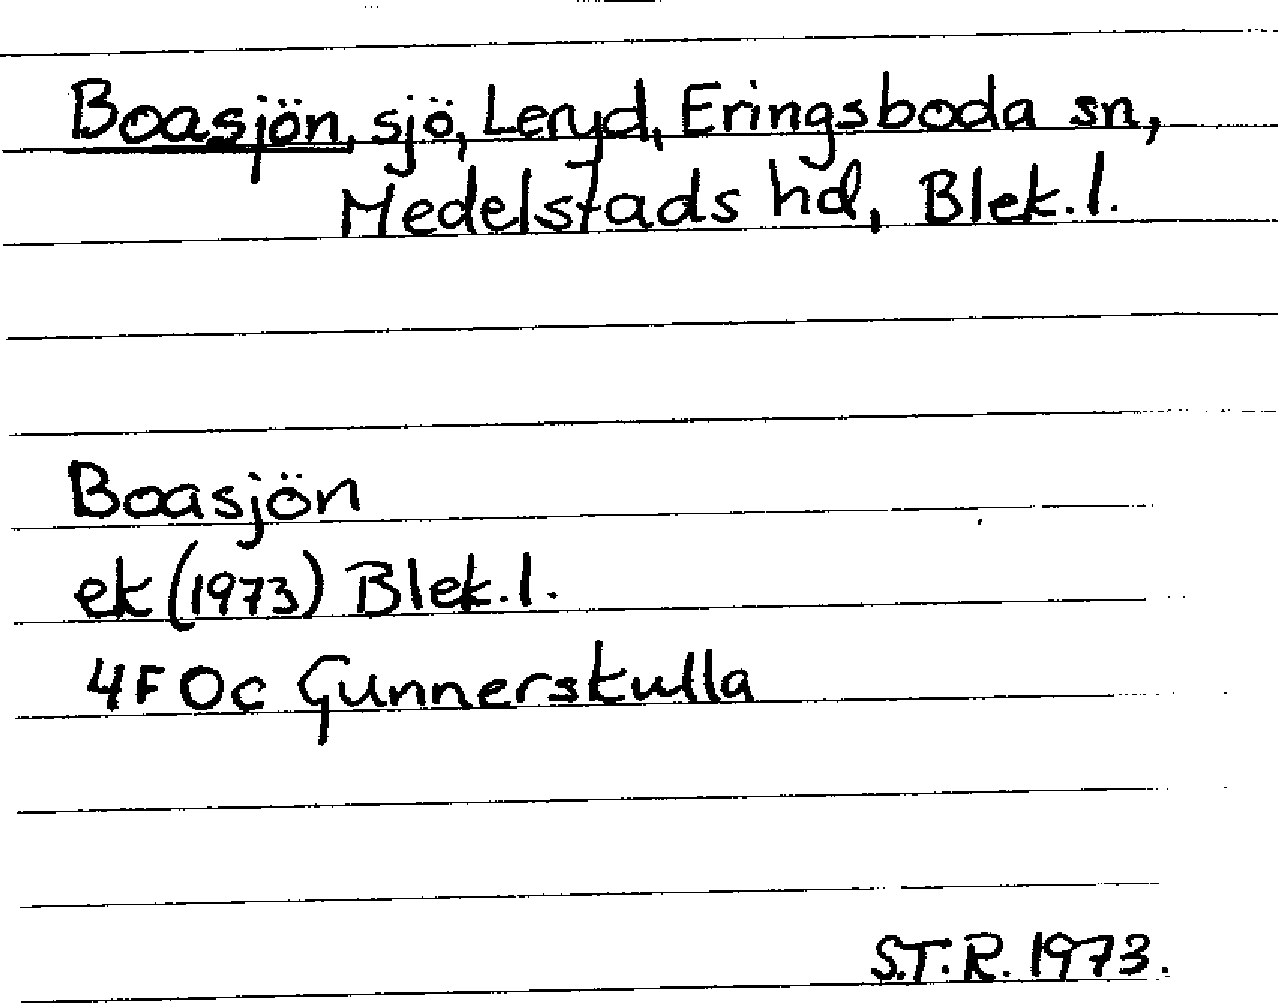 Boasjön, sjö, Leryd, Eringsboda sn,
Medelstads hd, Blek.l.
Boasjön
ek (1973) Blek.l.
4F Oc Gunnerskulla
S.T.R. 1973.